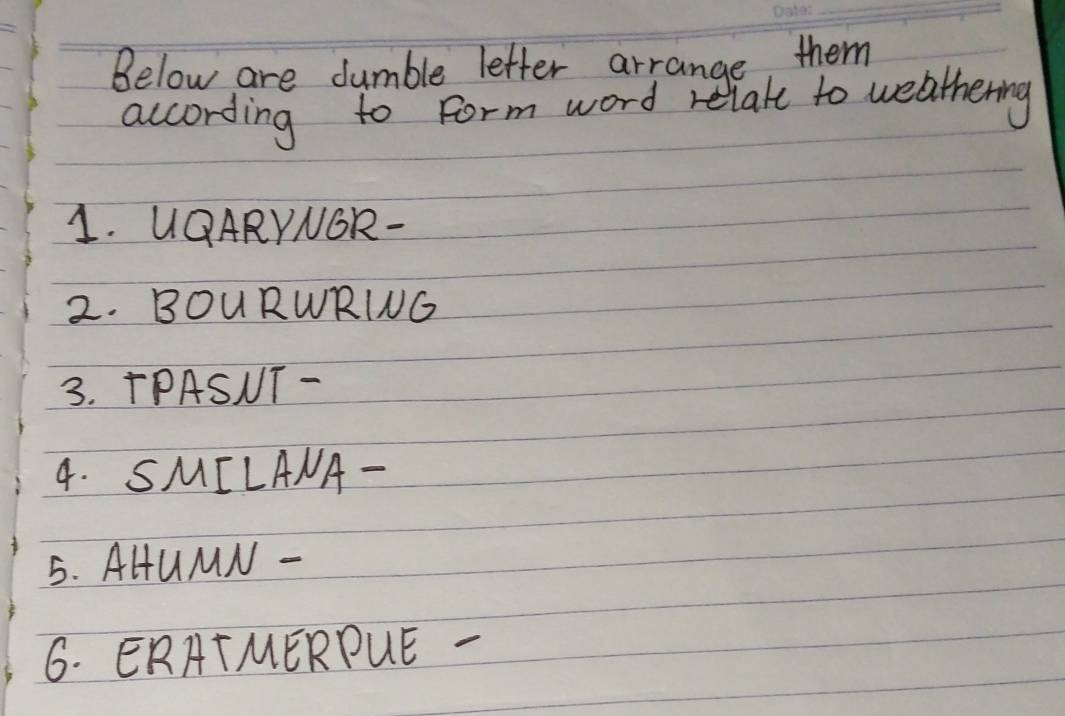 Date:
Below are Jumble letter arrange them
according to Form word relate to weathering
1. UQARYNGR-
2. BOURWRING
3. TPASNT-
4. SMILANA-
5. AHUMN-
6. ERATMERPUE-